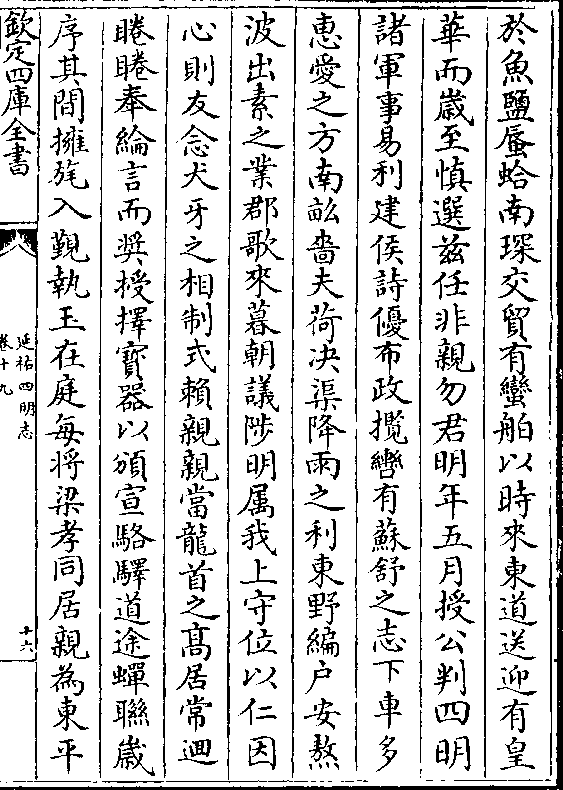 於魚鹽蜃蛤南琛交貿有蠻舶以時來東道送迎有皇
華而歳至慎選兹任非親勿君明年五月授公判四明
諸軍事易利建侯詩優布政攬轡有蘇舒之志下車多
惠愛之方南畝嗇夫荷決渠降雨之利東野編户安熬
波出素之業郡歌來暮朝議陟明属我上守位以仁因
心則友念犬牙之相制式賴親親當龍首之髙居常迴
睠睠奉綸言而奨授擇寳器以頒宣駱驛道途蟬聯歳
序其間擁旄入覲執玉在庭每将梁孝同居親為東平
欽定四庫全書
延祐四明志
卷十九
十六